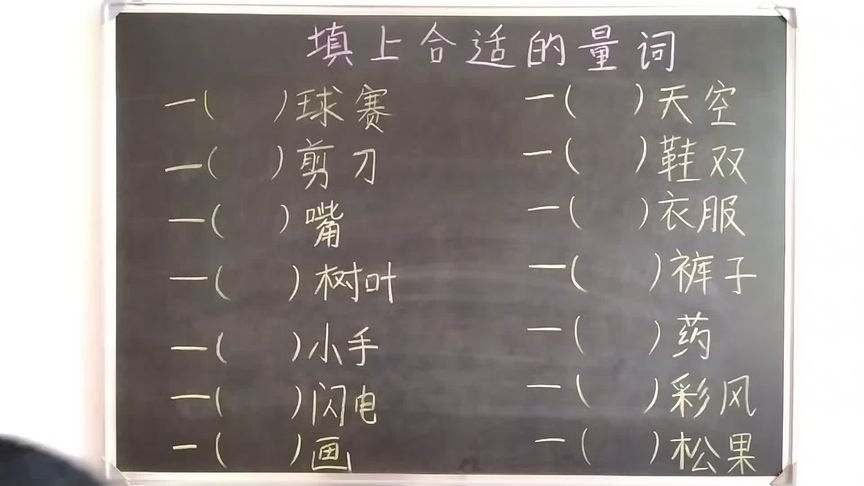 填上合适的量词
一( )球赛 一( )天空
一( )剪刀 一( )鞋双
一( )嘴 一( )衣服
一( )树叶 一( )裤子
一( )小手 一( )药
一( )闪电 一( )彩风
一( )画 一( )松果